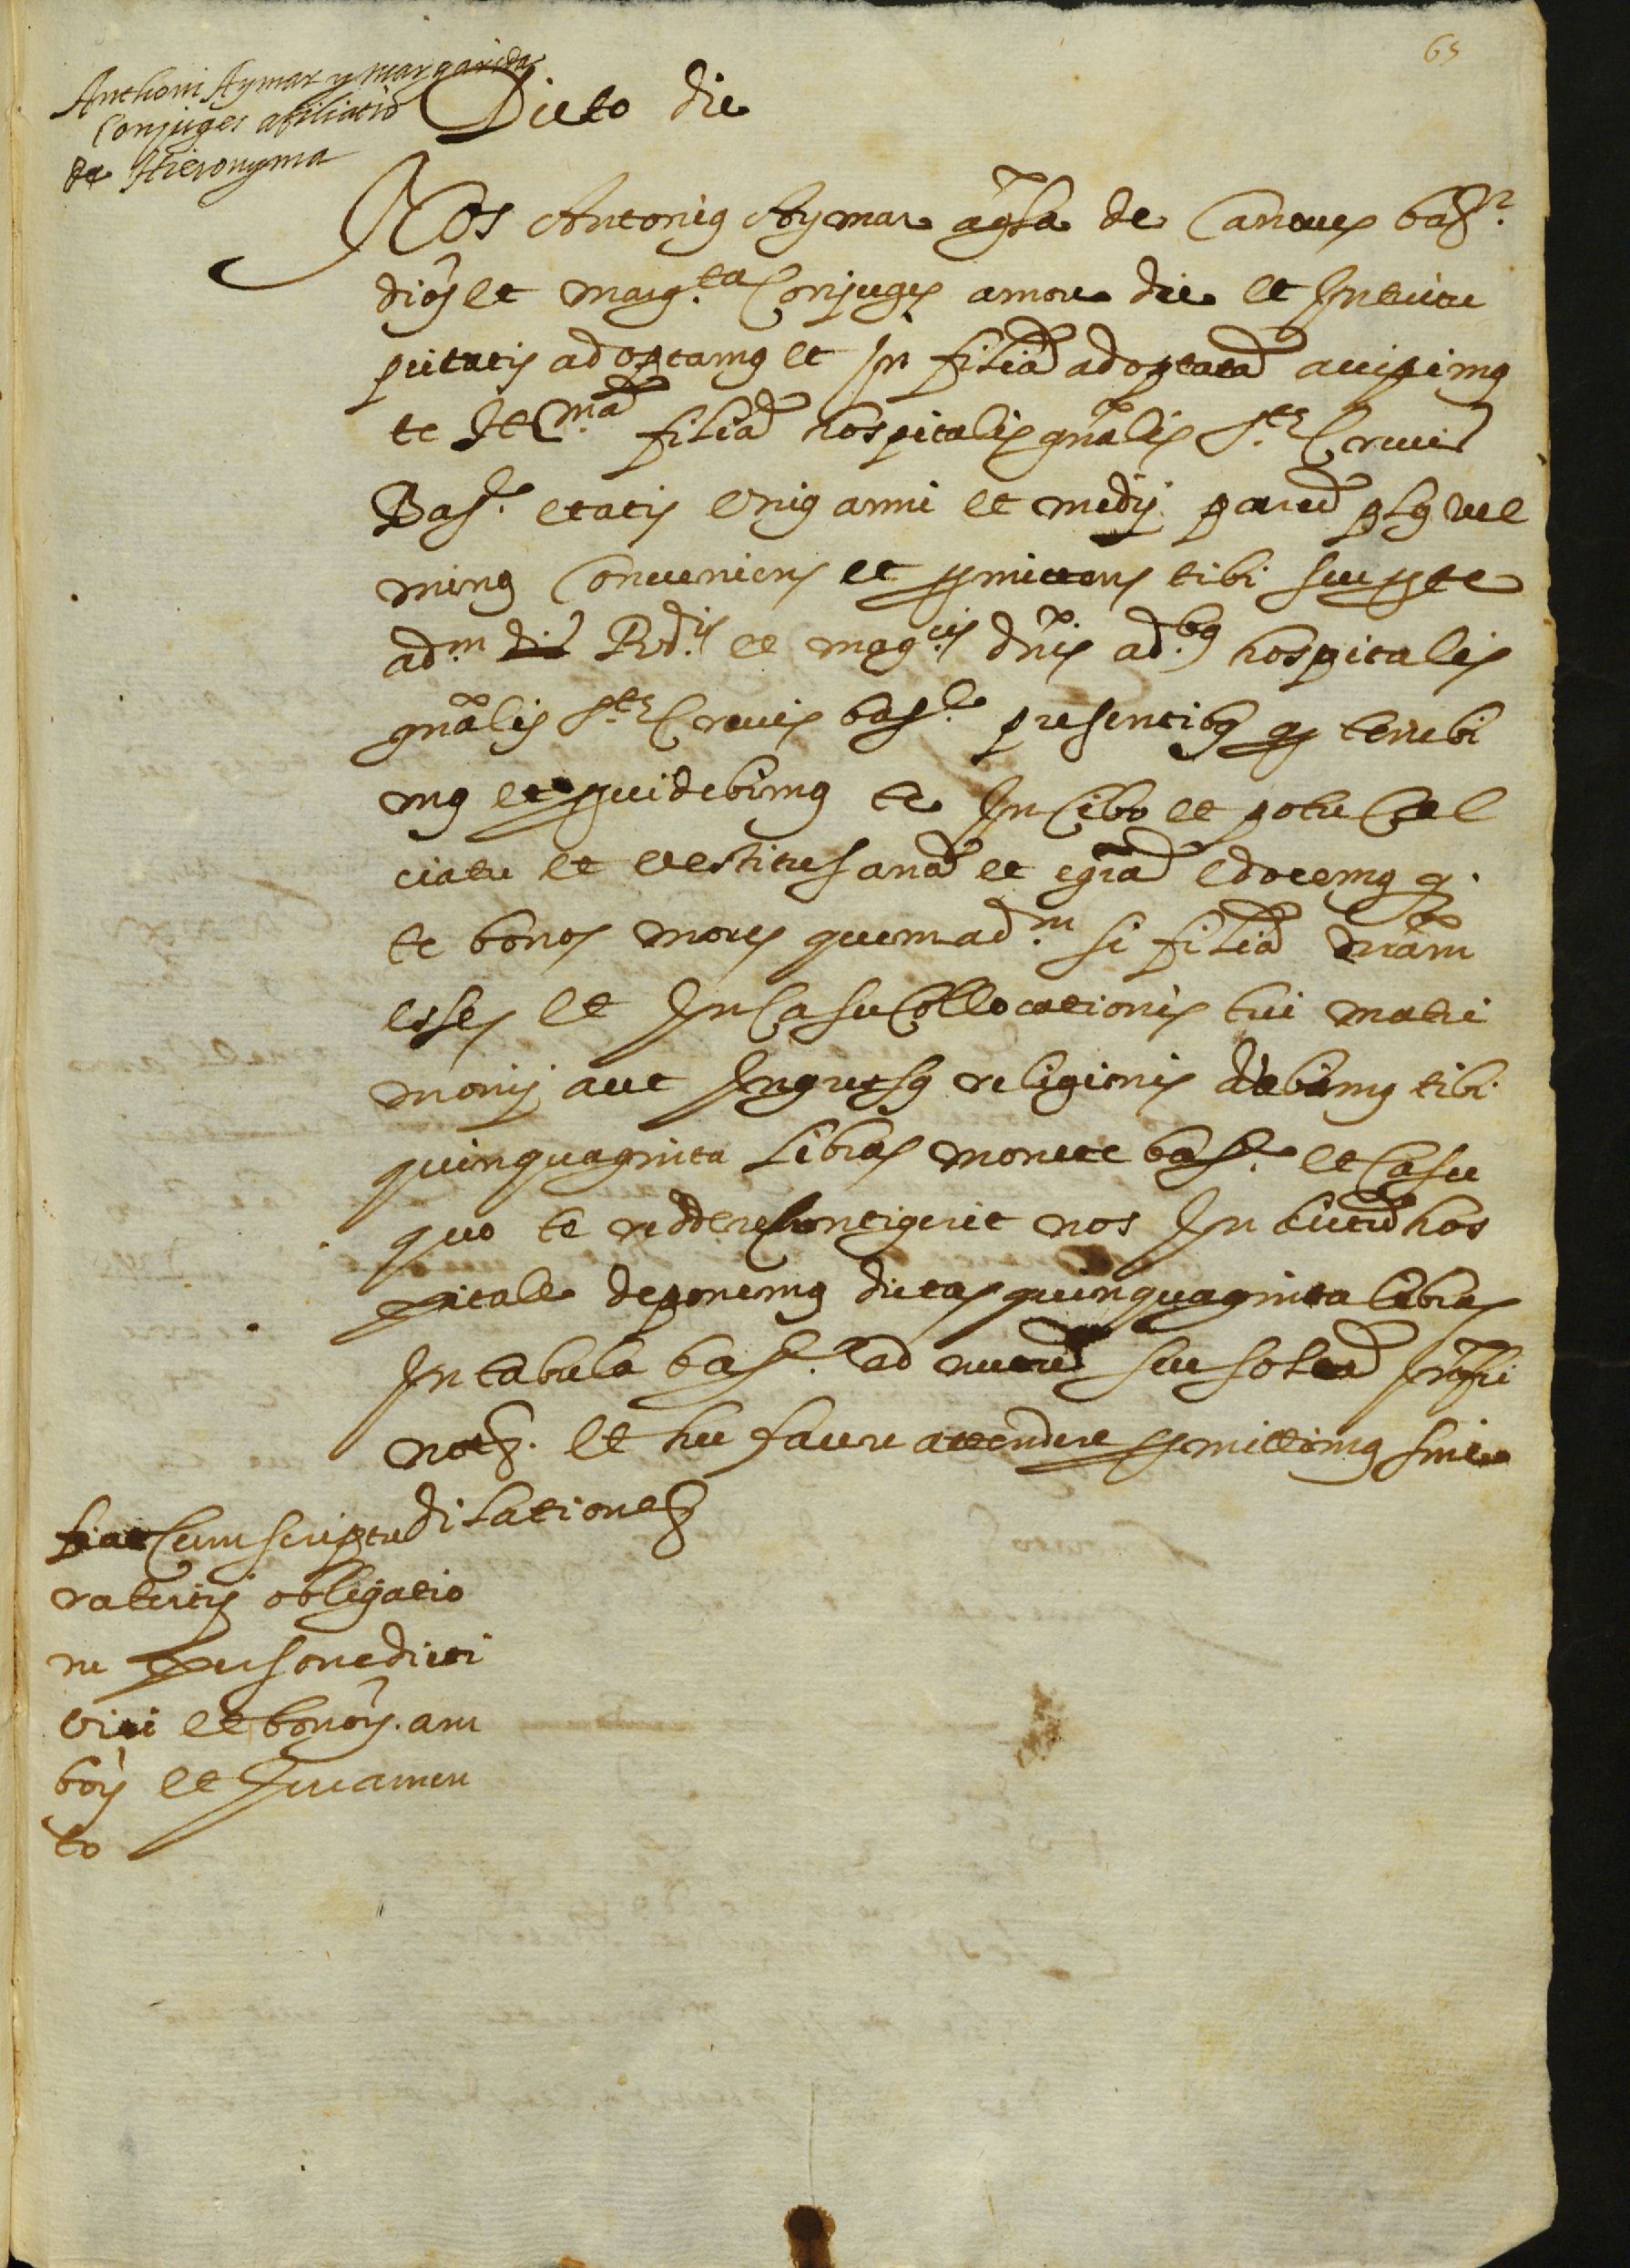 65
Anthoni Aymar y margarida
Conjuges afiliatio
de Hieronyma
Dicto die
Nos Antonius Aymar agla de Canoves
dioȷ et marg.ta Conjuges amore dei et Intuitu
pietatis adoptamus et In filiā adoptatā accipimus
te filiā hospitalis gnalis Ste Crucis
Barᵉ etatis unius anni et medij parū plus vel
minus Conveniens et promittens tibi seu pro te
ad.m Rdis et mag.cis dnis ad.bus hospitalis
gnalis Ste Crucis barᵉ presentibus q tenebi
mus et providebimus te In Cibo et potu Cal
ciatu et vestitu sanā et egrā edocemus q.
te bonos mores quemad.m si filiā nrām
esses et In Casu Collocationis tui matri
monij aut Ingressus religionis dabimus tibi
quinquaginta libras monete barᵉ et Casu
quo te reddere Contigerit nos In dictū hos
pitale deponemus dictas quinquaginta libras
In tabula barᵉ ad nutū seu soltā
et hec facere attendere promittimus sine
dilatione
fiat Cum scriptu
ratertij obligatio
ne persone dicti
viri et bonoȷ. am
boȷ et Juramen
to